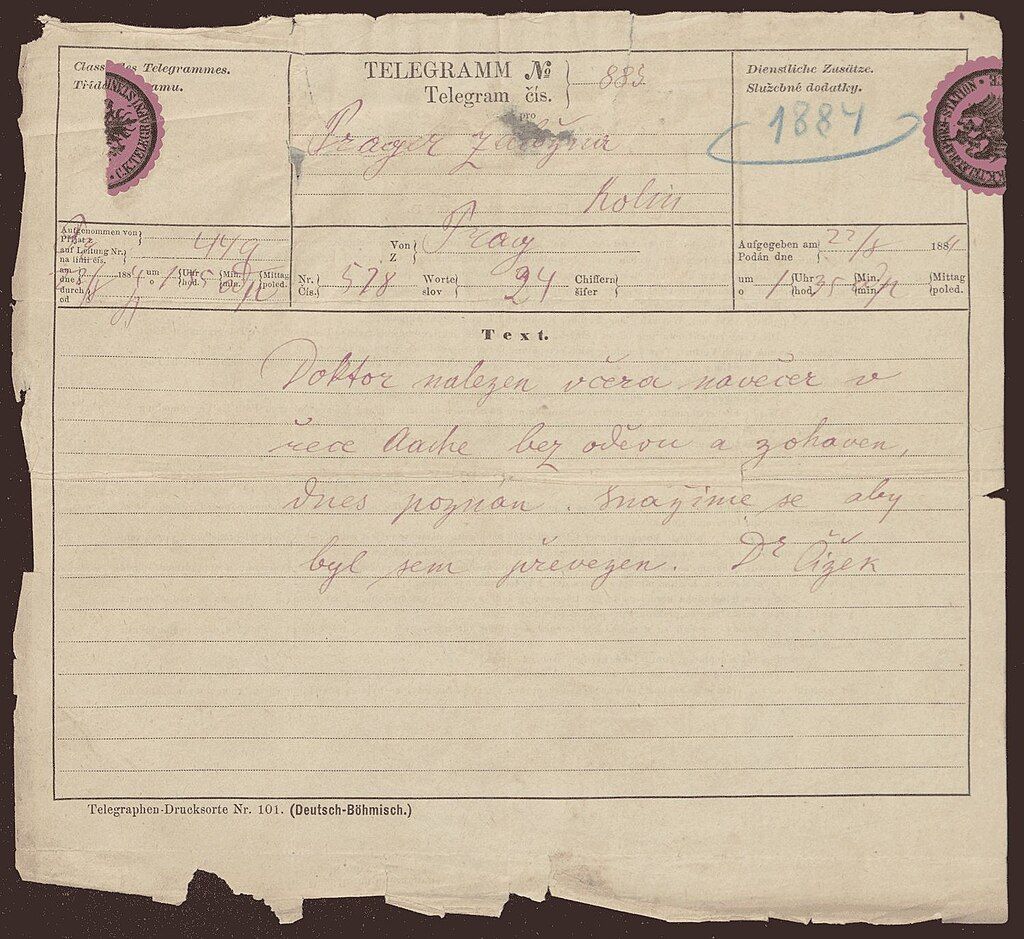 Classe des Telegrammes.
Třída telegramu.
C.K.TELEGRAFNÍ STANICE
TELEGRAMM №
Telegram čís. 885
pro
Prager
Kolin
Dienstliche Zusätze.
Služebné dodatky.
1884
K.K.TELEGRAFEN-STATION
Aufgenommen von
Přijat z
auf Leitung Nr.
na linii čís.
am
dne
188
um
o
Uhr
hod.
Min.
min.
Mittag
poled.
durch
od
Von
Z
Prag
Nr.
Čís.
578
Worte
slov
24
Chiffern
šifer
Aufgegeben am
Podán dne
22/8 1884
um
o
1 Uhr
hod.
35 Min.
min.
Mittag
poled.
Text.
Doktor nalezen včera navečer v
řece Aache bez oděvu a zohaven,
dnes poznán. Snažíme se aby
byl sem převezen. Dr Čížek
Telegraphen-Drucksorte Nr. 101. (Deutsch-Böhmisch.)